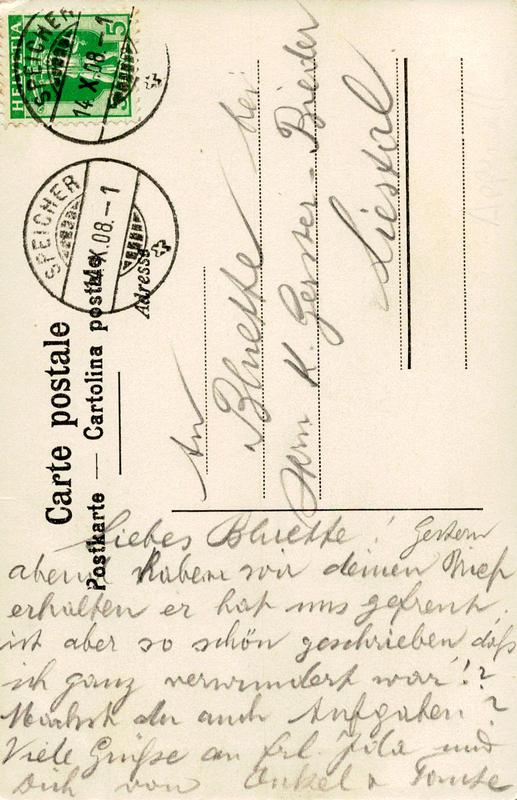 HELVETIA
5
SPEICHER
14.X.08.-1
SPEICHER
14.X.08.-1
Carte postale
Postkarte — Cartolina postale
Adresse
An
Bluette bei
Herrn K. Gerster-Bieder
Liestal
Liebes Bluette! Gestern
abend haben wir deinen Brief
erhalten er hat uns gefreut,
ist aber so schön geschrieben daß
ich ganz verwundert war!?
Machst du auch Aufgaben?
Viele Grüße an Frl. und
Dich von Onkel & Tante